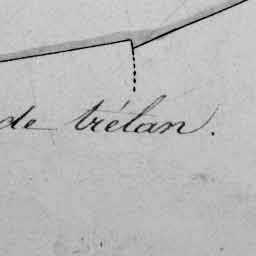 de trélan.